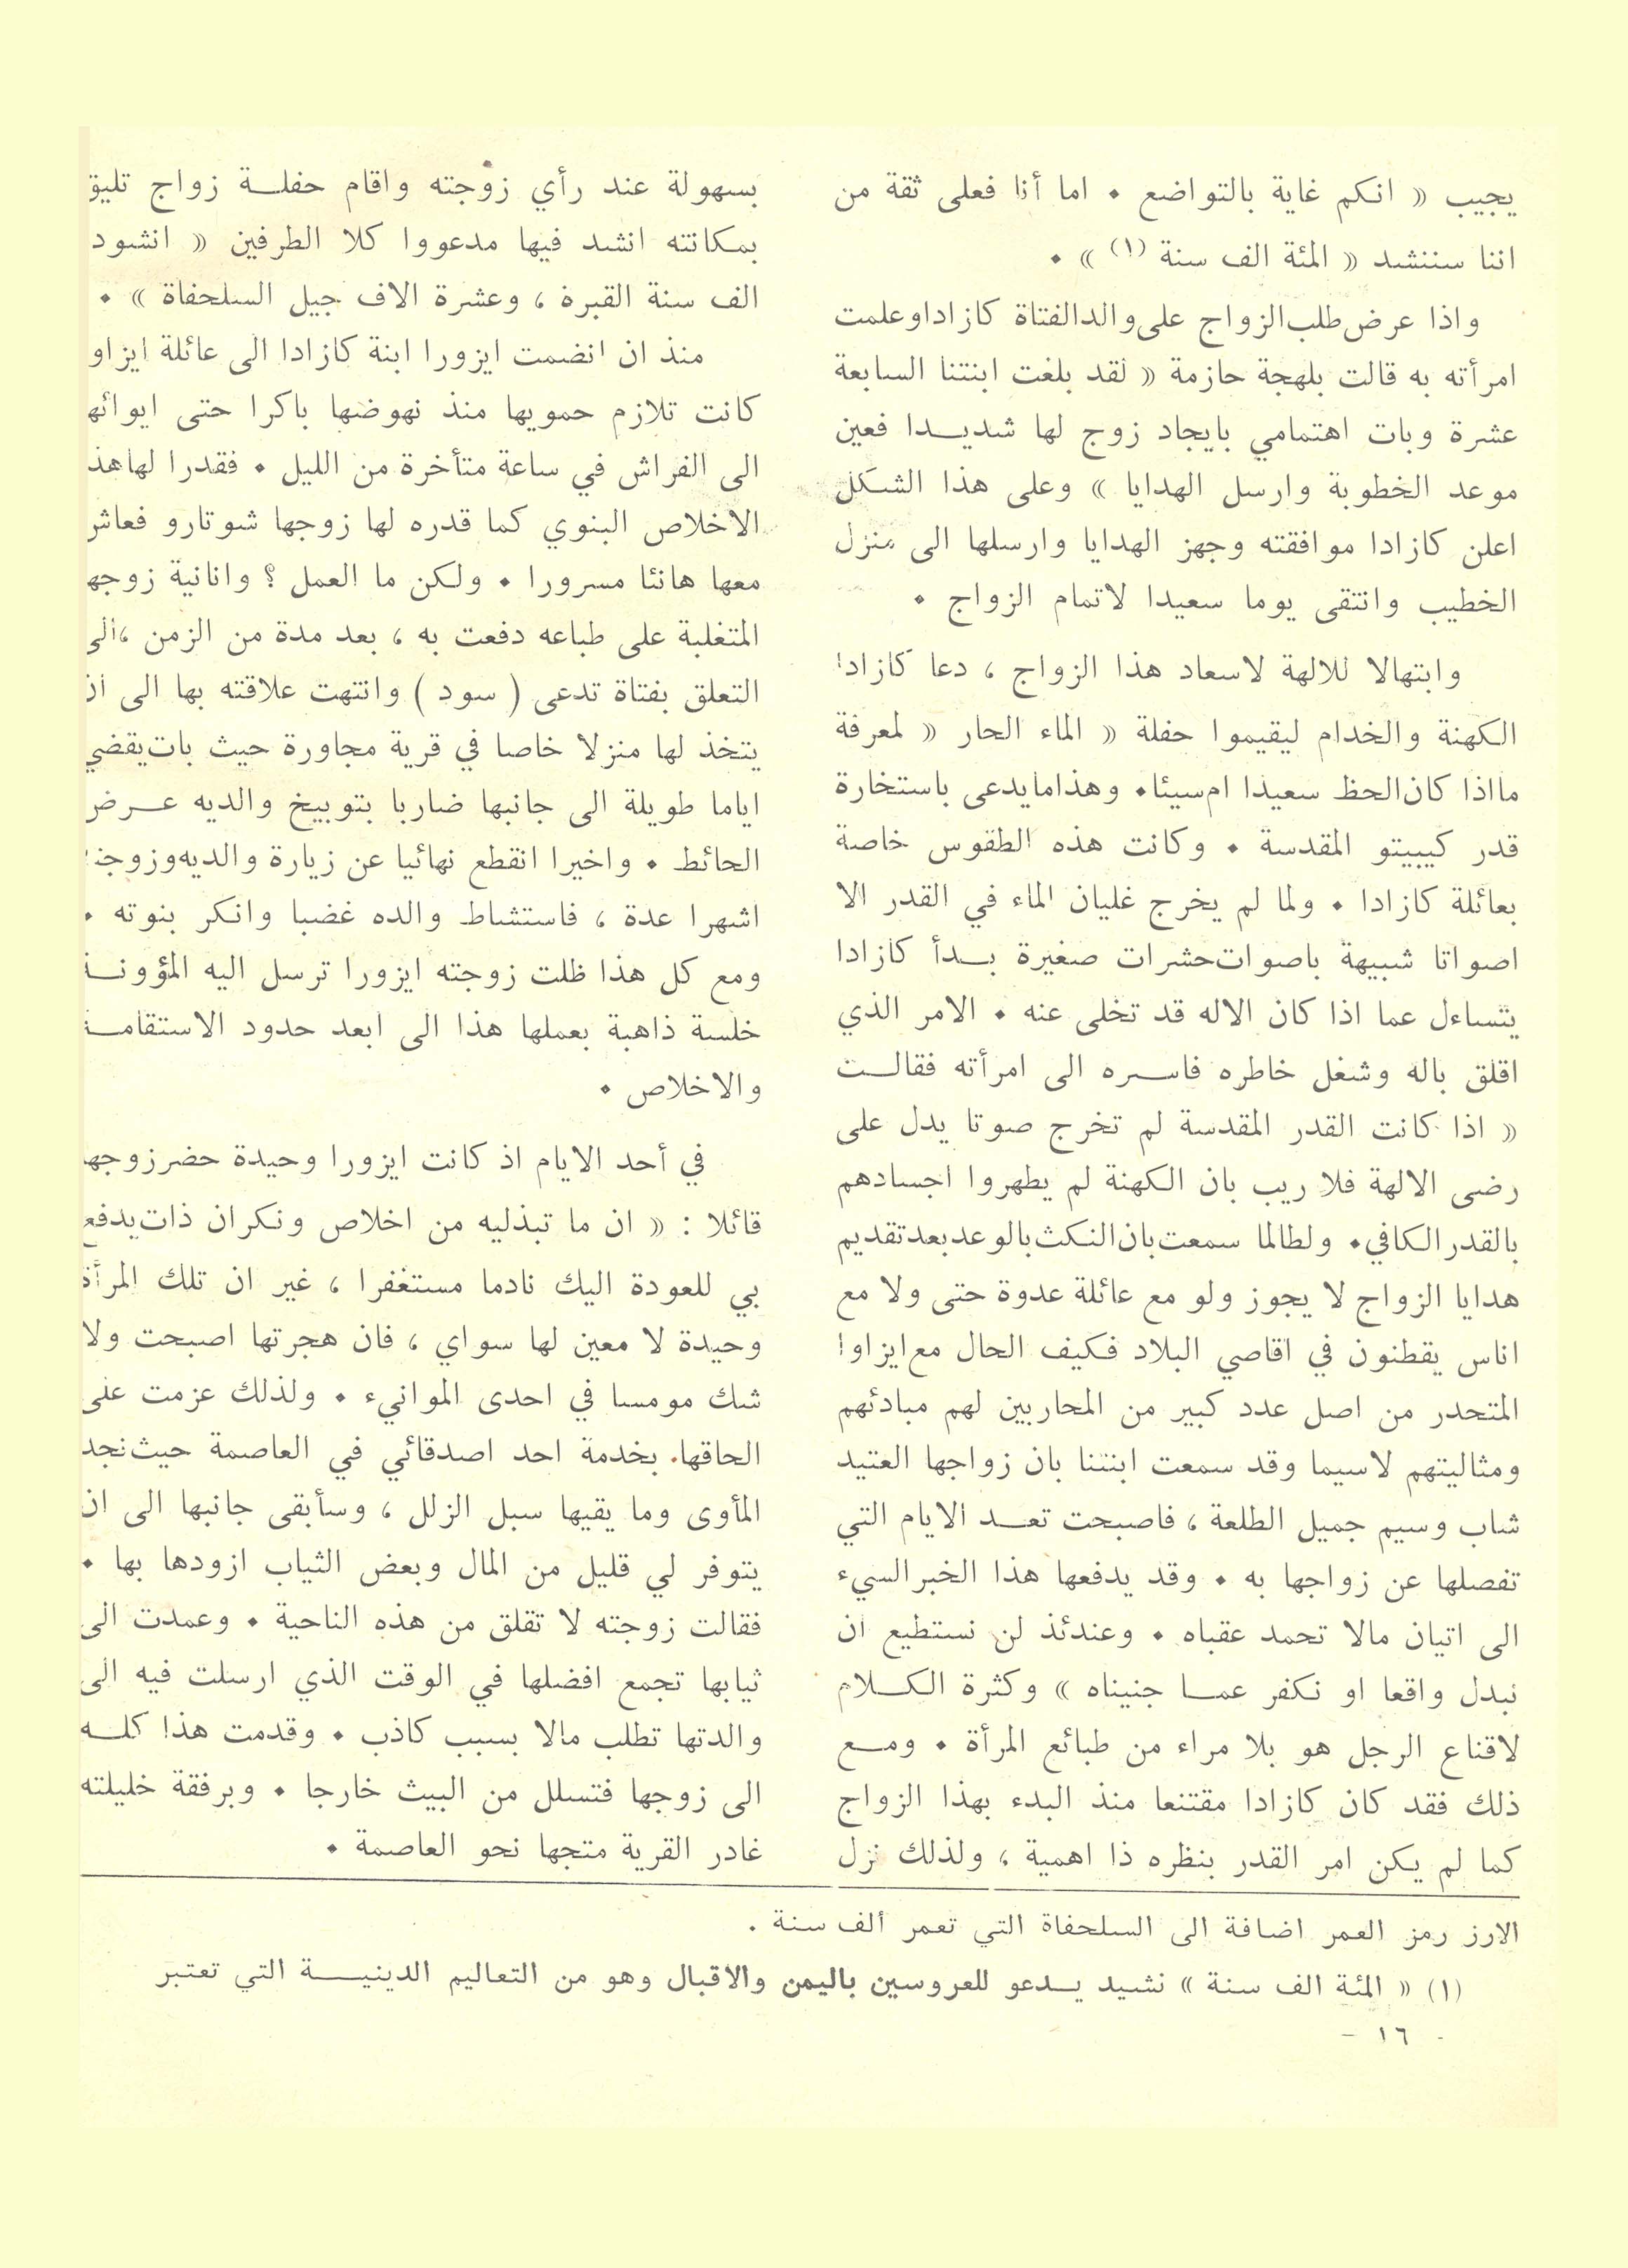 يجيب « انكم غاية بالتواضع . اما أنا فعلى ثقة من
اننا سننشد « المئة الف سنة (١) » .
واذا عرض طلب الزواج على والد الفتاة كازادا وعلمت
امرأته به قالت بلهجة حازمة « لقد بلغت ابنتنا السابعة
عشرة وبات اهتمامي بايجاد زوج لها شديدا فعين
موعد الخطوبة وارسل الهدايا » وعلى هذا الشكل
اعلن كازادا موافقته وجهز الهدايا وارسلها الى منزل
الخطيب وانتقى يوما سعيدا لاتمام الزواج .
وابتهالا للالهة لاسعاد هذا الزواج ، دعا كازادا
الكهنة والخدام ليقيموا حفلة « الماء الحار « لمعرفة
مااذا كان الحظ سعيدا ام سيئا . وهذا مايدعى باستخارة
قدر كيبيتو المقدسة . وكانت هذه الطقوس خاصة
بعائلة كازادا . ولما لم يخرج غليان الماء في القدر الا
اصواتا شبيهة باصوات حشرات صغيرة بدأ كازادا
يتساءل عما اذا كان الاله قد تخلى عنه . الامر الذي
اقلق باله وشغل خاطره فاسره الى امرأته فقالت
« اذا كانت القدر المقدسة لم تخرج صوتا يدل على
رضى الالهة فلا ريب بان الكهنة لم يطهروا اجسادهم
بالقدر الكافي . ولطالما سمعت بان النكث بالوعد بعد تقديم
هدايا الزواج لا يجوز ولو مع عائلة عدوة حتى ولا مع
اناس يقطنون في اقاصي البلاد فكيف الحال مع ايزاوا
المتحدر من اصل عدد كبير من المحاربين لهم مبادئهم
ومثاليتهم لاسيما وقد سمعت ابنتنا بان زواجها العتيد
شاب وسيم جميل الطلعة ، فاصبحت تعد الايام التي
تفصلها عن زواجها به . وقد يدفعها هذا الخبر السيء
الى اتيان مالا تحمد عقباه . وعندئذ لن نستطيع ان
نبدل واقعا او نكفر عما جنيناه » وكثرة الكلام
لاقناع الرجل هو بلا مراء من طبائع المرأة . ومع
ذلك فقد كان كازادا مقتنعا منذ البدء بهذا الزواج
كما لم يكن امر القدر بنظره ذا اهمية ، ولذلك نزل
بسهولة عند رأي زوجته واقام حفلة زواج تليق
بمكانته انشد فيها مدعووا كلا الطرفين « انشود
الف سنة القبرة ، وعشرة الاف جيل السلحفاة » .
منذ ان انضمت ايزورا ابنة كازادا الى عائلة ايزاو
كانت تلازم حمويها منذ نهوضها باكرا حتى ايوائه
الى الفراش في ساعة متأخرة من الليل . فقدرا لها هذ
الاخلاص البنوي كما قدره لها زوجها شوتارو فعاش
معها هانئا مسرورا . ولكن ما العمل ؟ وانانية زوجه
المتغلبة على طباعه دفعت به ، بعد مدة من الزمن ، الى
التعلق بفتاة تدعى ( سود ) وانتهت علاقته بها الى ان
يتخذ لها منزلا خاصا في قرية مجاورة حيث بات يقضي
اياما طويلة الى جانبها ضاربا بتوبيخ والديه عرض
الحائط . واخيرا انقطع نهائيا عن زيارة والديه وزوجته
اشهرا عدة ، فاستشاط والده غضبا وانكر بنوته .
ومع كل هذا ظلت زوجته ايزورا ترسل اليه المؤونة
خلسة ذاهبة بعملها هذا الى ابعد حدود الاستقامة
والاخلاص .
في أحد الايام اذ كانت ايزورا وحيدة حضر زوجها
قائلا : « ان ما تبذليه من اخلاص ونكران ذات يدفع
بي للعودة اليك نادما مستغفرا ، غير ان تلك المرأة
وحيدة لا معين لها سواي ، فان هجرتها اصبحت ولا
شك مومسا في احدى الموانيء . ولذلك عزمت على
الحاقها بخدمة احد اصدقائي في العاصمة حيث نجد
المأوى وما يقيها سبل الزلل ، وسأبقى جانبها الى ان
يتوفر لي قليل من المال وبعض الثياب ازودها بها .
فقالت زوجته لا تقلق من هذه الناحية . وعمدت الى
ثيابها تجمع افضلها في الوقت الذي ارسلت فيه الى
والدتها تطلب مالا بسبب كاذب . وقدمت هذا كله
الى زوجها فتسلل من البيث خارجا . وبرفقة خليلته
غادر القرية متجها نحو العاصمة .
الارز رمز العمر اضافة الى السلحفاة التي تعمر ألف سنة .
(١) « المئة الف سنة » نشيد يدعو للعروسين باليمن والاقبال وهو من التعاليم الدينية التي تعتبر
- ١٦ -